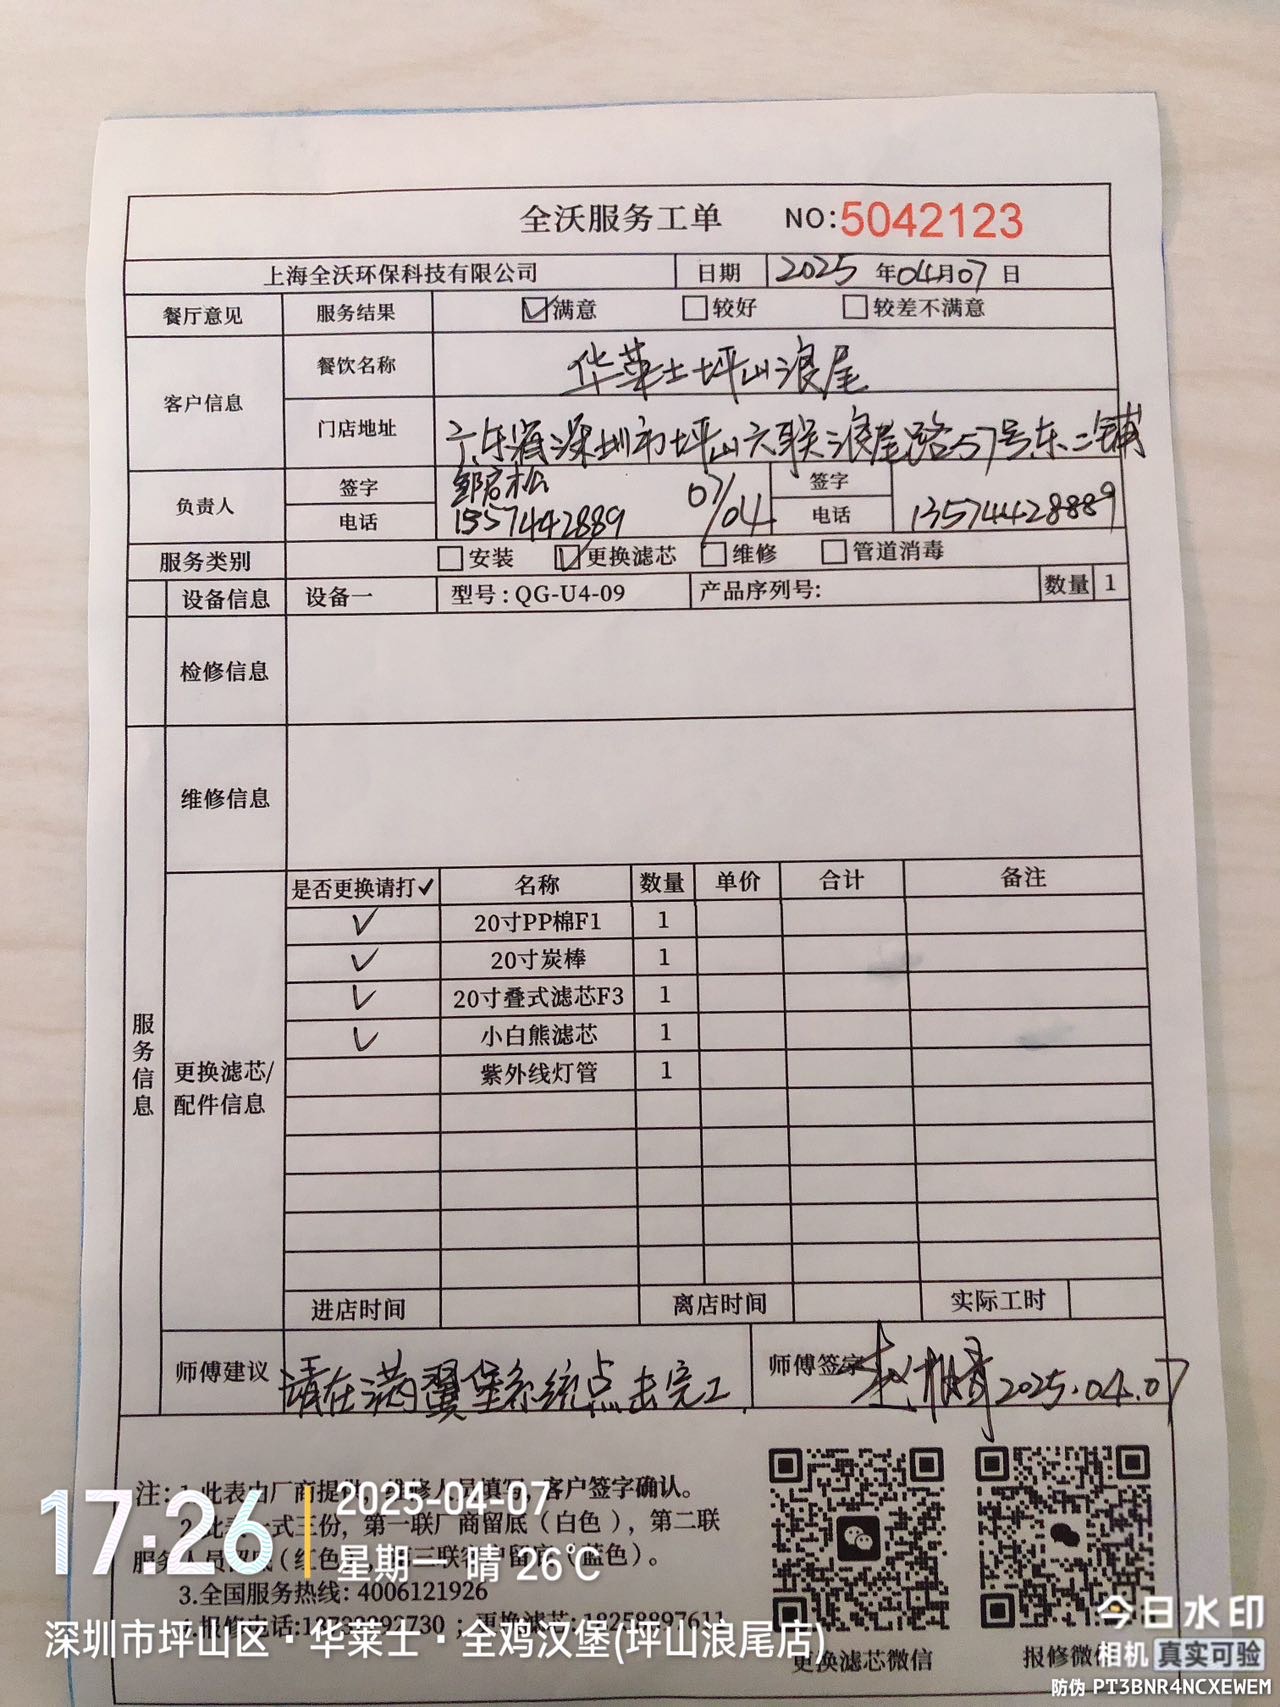 全沃服务工单 NO:5042123
上海全沃环保科技有限公司 日期 2025 年 04 月 07 日
餐厅意见 服务结果 ☑满意 □较好 □较差不满意
客户信息 餐饮名称 华莱士坪山浪尾
门店地址 广东省深圳市坪山六联浪尾路57号东二铺
负责人 签字 邹启松 07/04 签字
电话 13574428889 电话 13574428889
服务类别 □安装 ☑更换滤芯 □维修 □管道消毒
设备信息 设备一 型号:QG-U4-09 产品序列号: 数量 1
检修信息
维修信息
服务信息
更换滤芯/
配件信息
是否更换请打✓ 名称 数量 单价 合计 备注
✓ 20寸PP棉F1 1
✓ 20寸炭棒 1
✓ 20寸叠式滤芯F3 1
✓ 小白熊滤芯 1
紫外线灯管 1
进店时间 离店时间 实际工时
师傅建议 请在满翼堡系统点击完工 师傅签字 2025.04.07
注: 1.此表由厂商提供 维修人员填写 客户签字确认。
2.此 式三份，第一联厂商留底（白色），第二联
服务人员留底（红色 三联 留底（蓝色）。
3.全国服务热线: 4006121926
4.报修电话: ；更换滤芯: 18258897611
更换滤芯微信 报修微信
17:26 2025-04-07
星期一 晴 26℃
深圳市坪山区·华莱士·全鸡汉堡(坪山浪尾店)
今日水印
相机 真实可验
防伪 PT3BNR4NCXEWEM